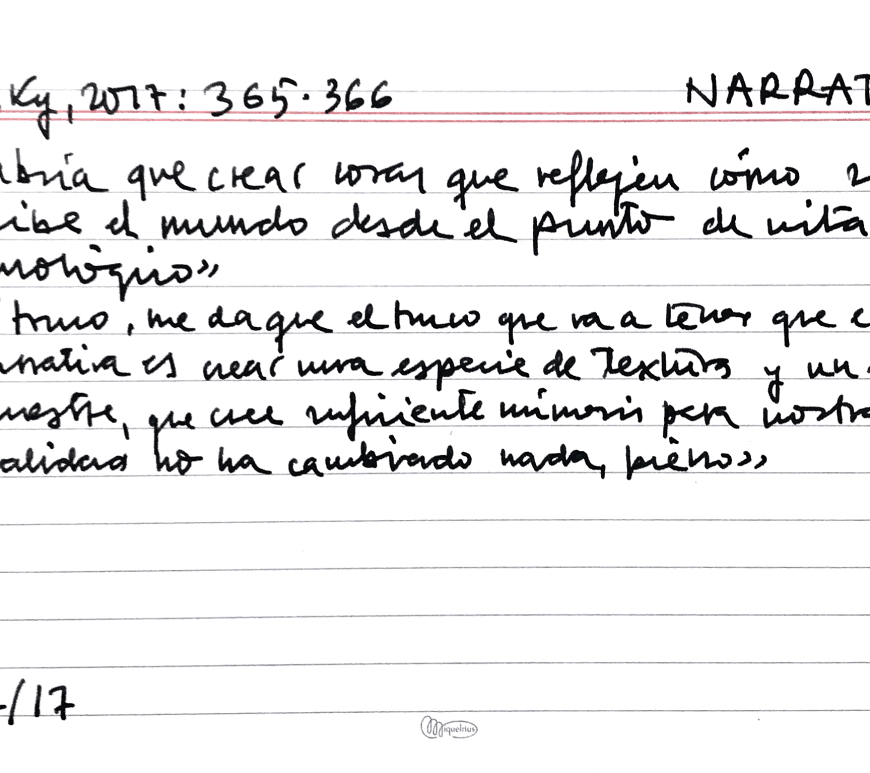 .Ky, 2017: 365-366 NARRAT
bría que crear cosas que reflejen cómo
ibe el mundo desde el punto de vista
nológico»
truco, me da que el truco que va a tener que
rrativa es crear una especie de textura y un
uestre, que cree suficiente mímesis para mostra
alidad no ha cambiado nada, pienso»
/17
Miquelrius